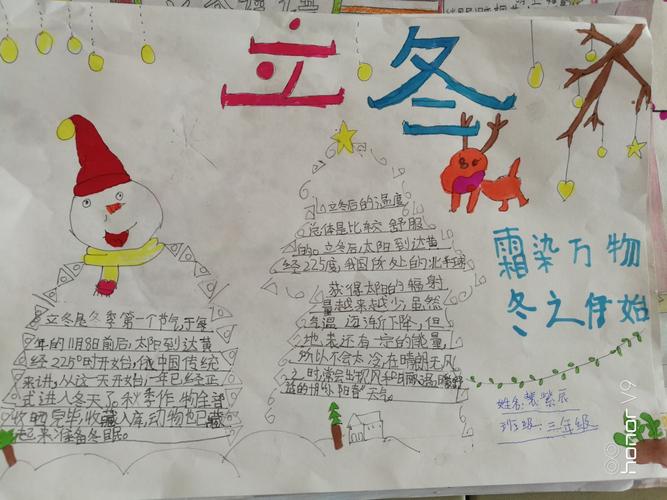 立冬
霜染万物
冬之伊始
立冬是冬季第一个节气,于每
年的11月8日前后,太阳到达黄
经225°时开始,我中国传统
来讲,从这一天开始,一年已经正
式进入冬天了,秋季作物全部
收晒完毕,收藏入库,动物也已藏
起来准备冬眠。
立冬后的温度
总体是比较舒服
的。立冬后,太阳到达黄
经225度,我国所处的北半球
获得太阳的辐射
量越来越少,虽然
气温逐渐下降,但
地表还有一定的能量,
所以不会太冷,在晴朗无风
之时,常会出现风和日丽、温暖舒
适的十月"小阳春"天气。
姓名:紫辰
班级:三年级
honor V9